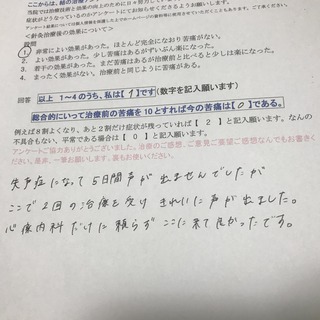 ここからは、鍼の治療
当院では治療技術と効果の向上のために日々努力してい
症状がどうなっているのかアンケートにてお知らせくださるようお願い
＜針灸治療後の効果について＞
質問
1. 非常によい効果があった。ほとんど完全になおり苦痛がない。
2. よい効果があった。少し苦痛はあるがずいぶん楽になった。
3. 若干の効果があった。まだ苦痛はあるが治療前と比べると少しは楽になった。
4. まったく効果がない。治療前と同じように苦痛がある。
回答 以上 1～4のうち、私は【1】です（数字を記入願います）
総合的にいって治療前の苦痛を10とすれば今の苦痛は【0】である。
例えば8割よくなり、あと2割だけ症状が残っていれば【 2 】と記入願います。なんの
不具合もない、平常である場合は【 0 】と記入願います。
アンケートご協力ありがとうございました。治療のご感想、ご意見ご要望ご感想なんでもお書き
ください。是非、一筆お願いします。裏もお使いください。
失声症になって5日間声が出ませんでしたが
ここで2回の治療を受け きれいに声が出ました。
心療内科だけに頼らず ここに来て良かったです。